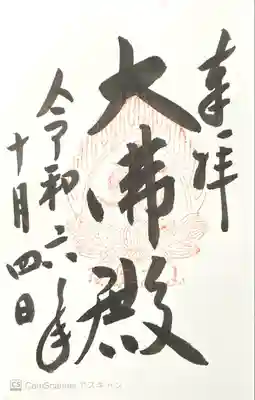 奉拝
大佛殿
令和六年
十月四日
CS CamScanner でスキャン